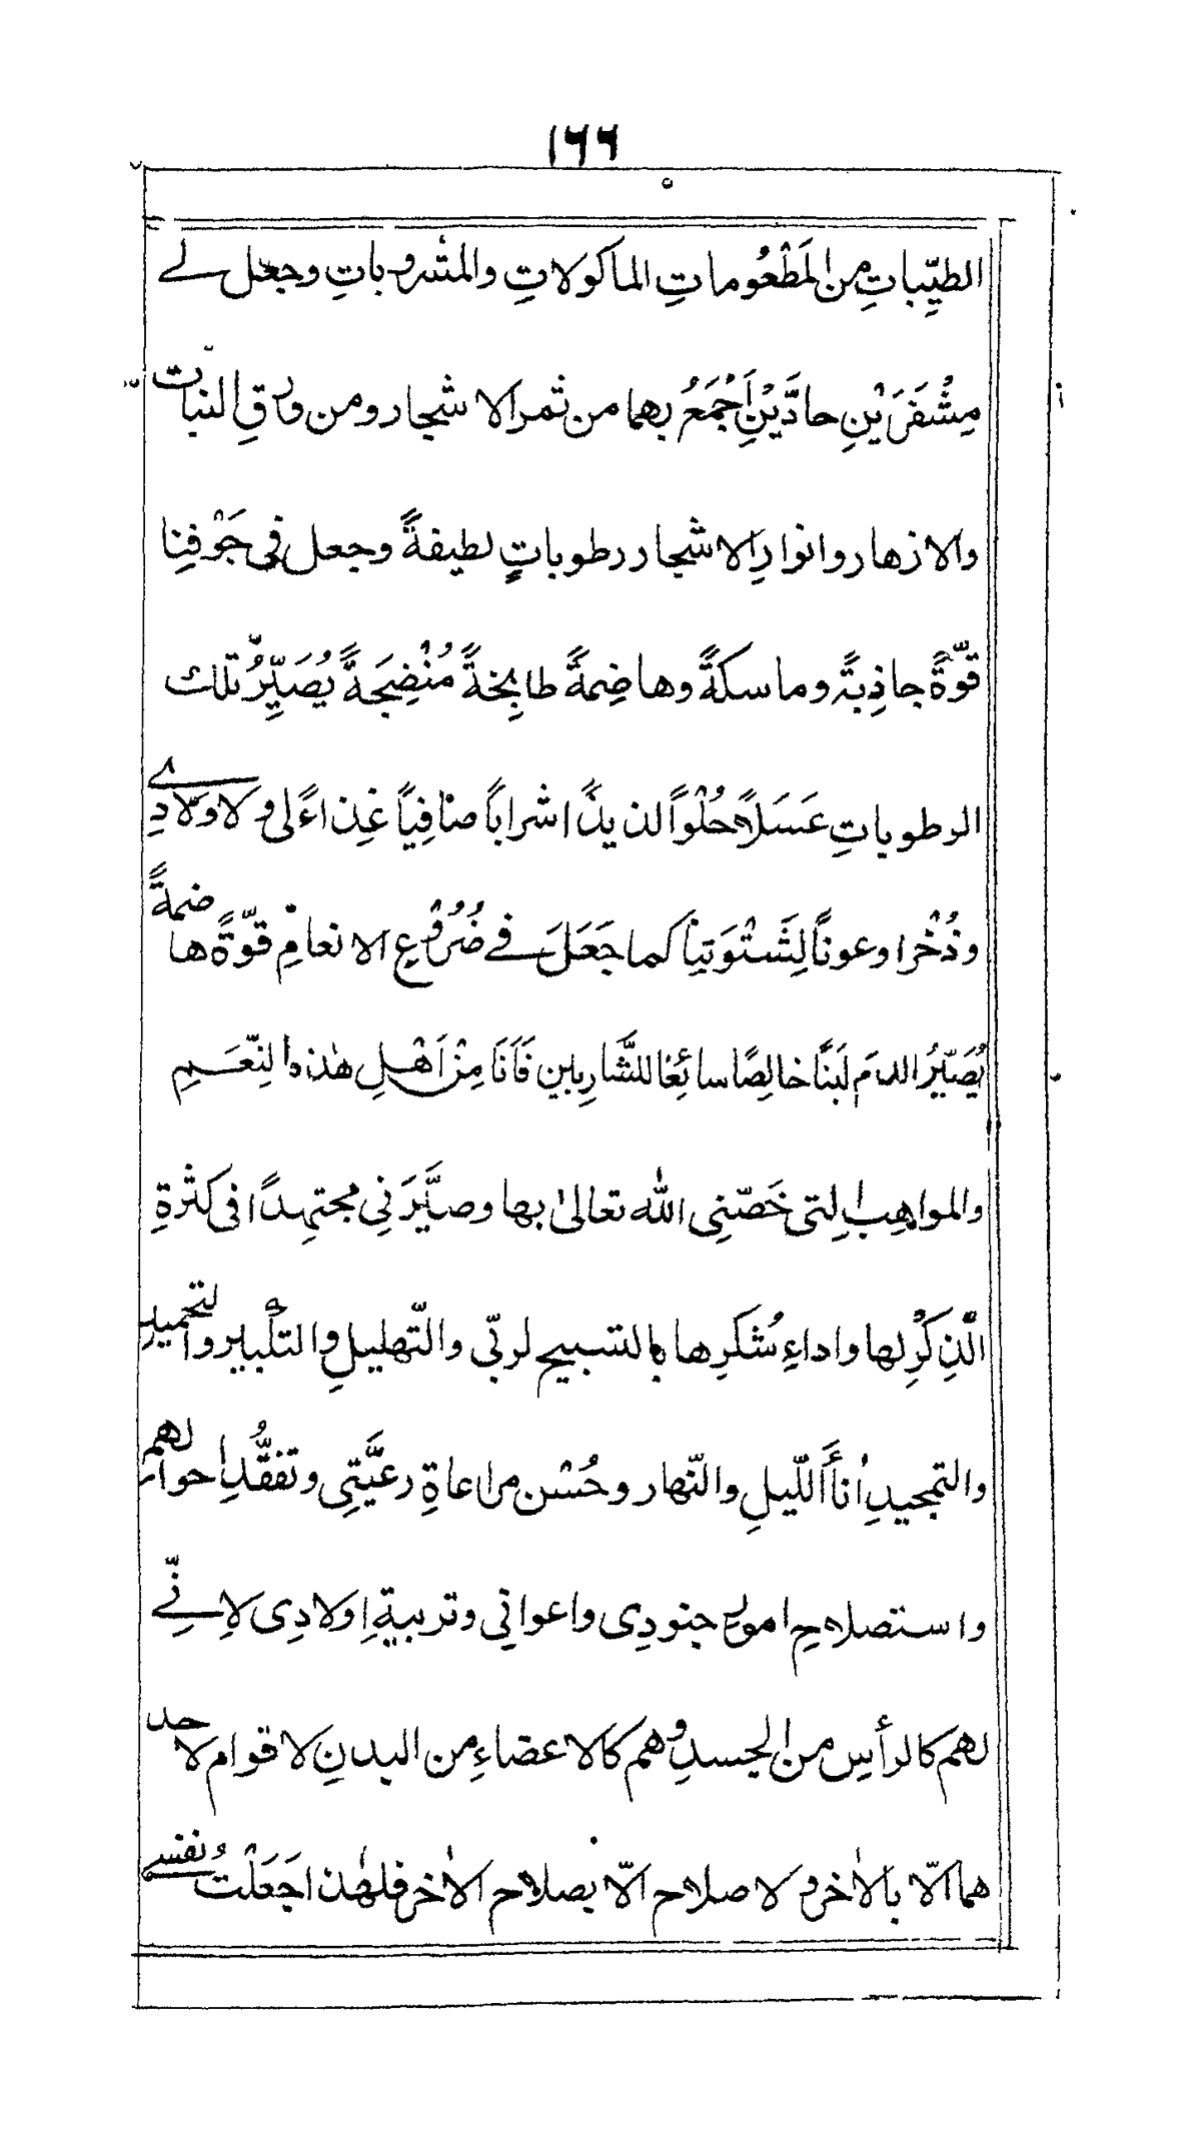 ١٦٦
الطيِّباتِ من المَطْعُوماتِ الماكولاتِ والمشروباتِ وجعل لے
مِشْفَرَيْنِ حادَّيْنِ اَجْمَعُ بهما من ثمر الاشجار ومن ورقِ النبات
والازهار وانوارِ الاشجار رطوباتٍ لطيفةً وجعل فى جَوْفِنا
قوّةً جاذِبةً وماسكةً وهاضِمةً طابِخةً مُنْضِجَةً يُصَيِّرُ تلك
الرطوباتِ عَسَلًا حُلْوًا لذيذًا شرابًا صافِيًا غِذاءً لى ولاولادِے
وذُخْرا وعونًا لِشَتْوَتِنا كما جَعَلَ فے ضُرُوْعِ الانعامِ قوّةً هاضمةً
يُصَيّرُ الدمَ لَبَنًا خالِصًا سائِغا للشَّارِبين فَاَنَا مِنْ اَهْلِ هٰذه النِّعَمِ
والمواهبِ التِى خَصّنِى الله تعالىٰ بها وصيَّرَنِى مجتهِدًا فى كثْرةِ
الّذِكْرِ لها واداءِ شُكرِها بالتسبيح لربّى والتّهليلِ والتكْبير والتحميدِ
والتمجيدِ اٰناءَ اللّيلِ والنّهار وحُسْن مراعاةِ رعيَّتِى وتفقُّدِ احوالهم
واستصلاحِ امورِ جنودِى واعوانِى وتربيةِ اولادِى لاِنِّے
لهم كالرأسِ من الجسدِ وهم كالاعضاءِ من البدنِ لاقوام لاحد
هما الّا بالاٰخر ولا صلاح الّا بصلاح الاٰخر فلهٰذا جَعَلْتُ نفسے